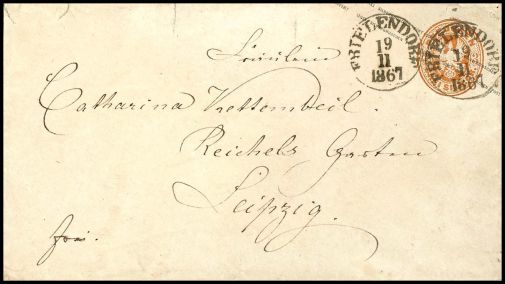 FRIELENDORF
19
11
1867
FRIELENDORF
19
11
1867
Fräulein
Catharina Kettembeil.
Reichels Garten
Leipzig.